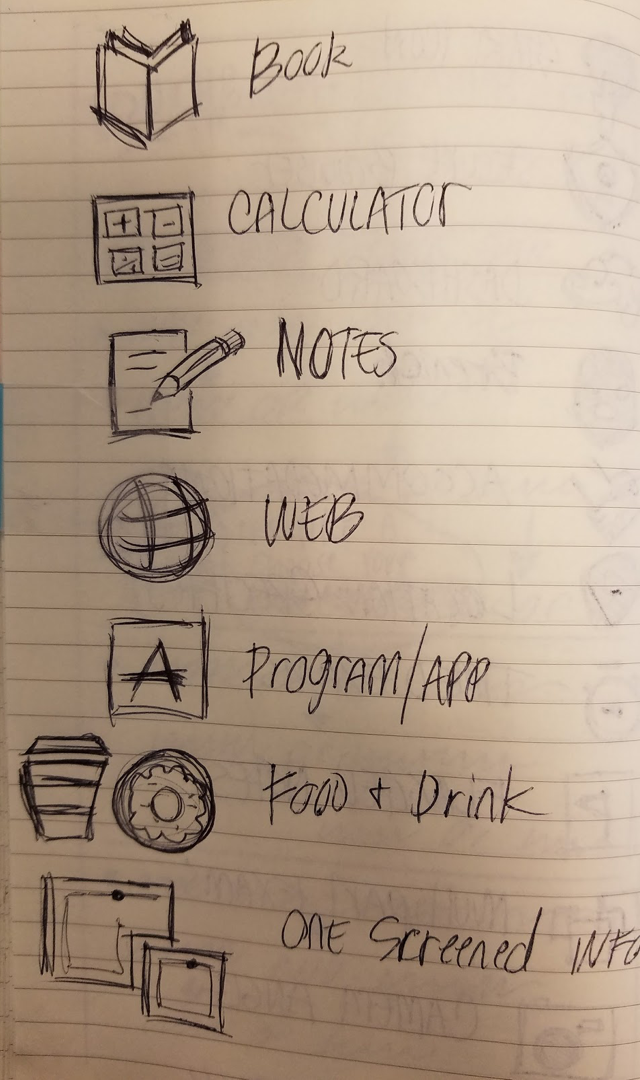 Book
+ -
CALCULATOr
NOTES
WEB
A
Program/APP
Food + Drink
ONE Screened INFO